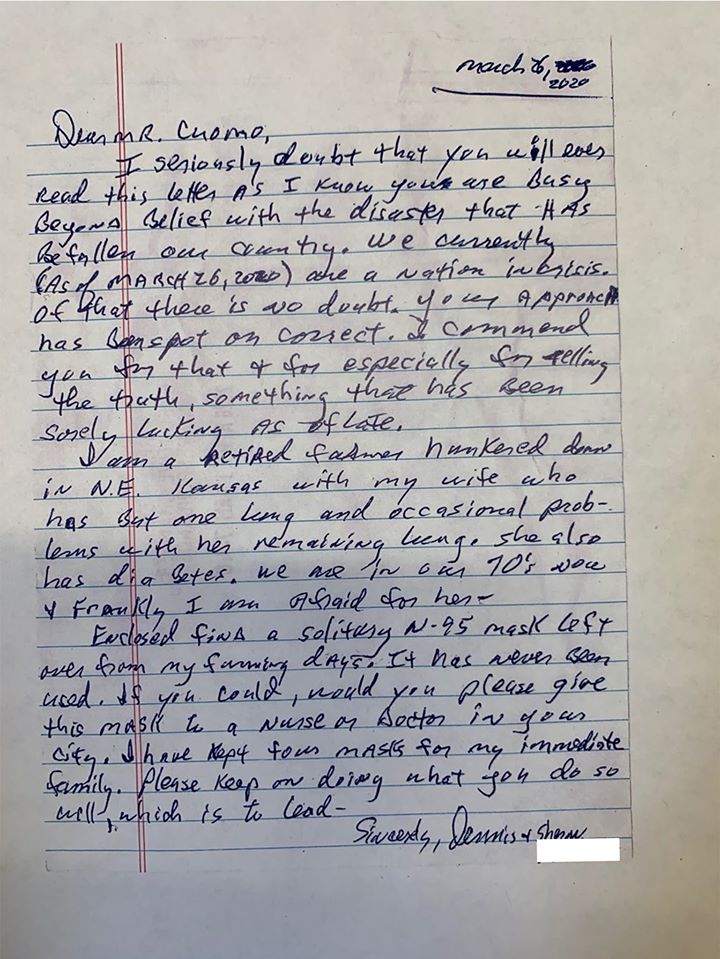 March 26,
2020
Dear MR. Cuomo,
I seriously doubt that you will ever
read this letter As I know you are Busy
Beyond Belief with the disaster that HAS
Befallen our country. We currently
(As of MARCH 26, 2020) are a nation in crisis.
Of that there is no doubt. your Approach
has Been spot on correct. I commend
you for that & for especially for telling
the truth, something that has Been
sorely lacking As of late.
I am a Retired farmer hunkered down
in N.E. Kansas with my wife who
has But one lung and occasional prob-
lems with her remaining lung. She also
has diaBetes. We are in our 70's now
& Frankly I am Afraid for her-
Enclosed find a solitary N-95 mask left
over from my farming days. It has never Been
used. If you could, would you please give
this mask to a Nurse or Doctor in your
city. I have kept four masks for my immediate
family. Please keep on doing what you do so
well, which is to lead-
Sincerely, Dennis & Sharon